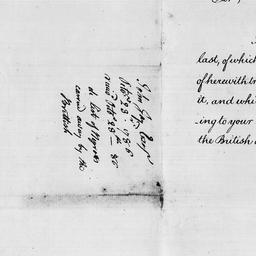 John Jay Esqr
Octr 23d 1786
recd Octr 23 — 86
& List of Negroes
carried away by the
British
last, of which
of herewith tr
it, and whi
ing to your
the British